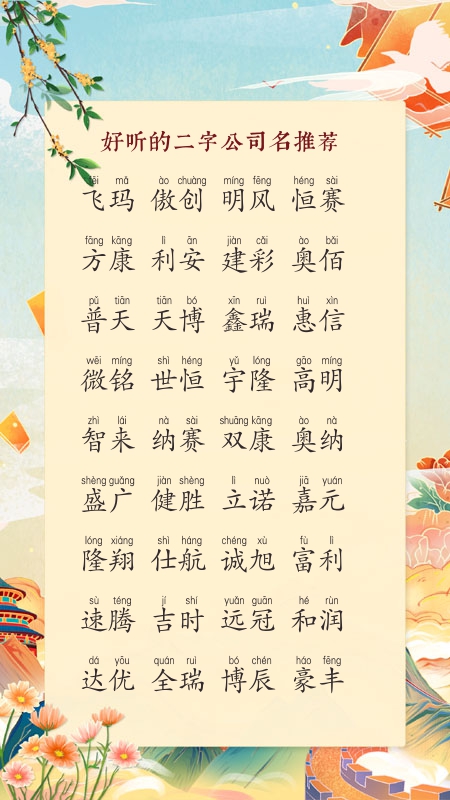 好听的二字公司名推荐
fēi mǎ ào chuàng míng fēng héng sài
飞玛 傲创 明风 恒赛
fāng kāng lì ān jiàn cǎi ào bǎi
方康 利安 建彩 奥佰
pǔ tiān tiān bó xīn ruì huì xìn
普天 天博 鑫瑞 惠信
wēi míng shì héng yǔ lóng gāo míng
微铭 世恒 宇隆 高明
zhì lái nà sài shuāng kāng ào nà
智来 纳赛 双康 奥纳
shèng guǎng jiàn shèng lì nuò jiā yuán
盛广 健胜 立诺 嘉元
lóng xiáng shì háng chéng xù fù lì
隆翔 仕航 诚旭 富利
sù téng jí shí yuǎn guān hé rùn
速腾 吉时 远冠 和润
dá yōu quán ruì bó chén háo fēng
达优 全瑞 博辰 豪丰